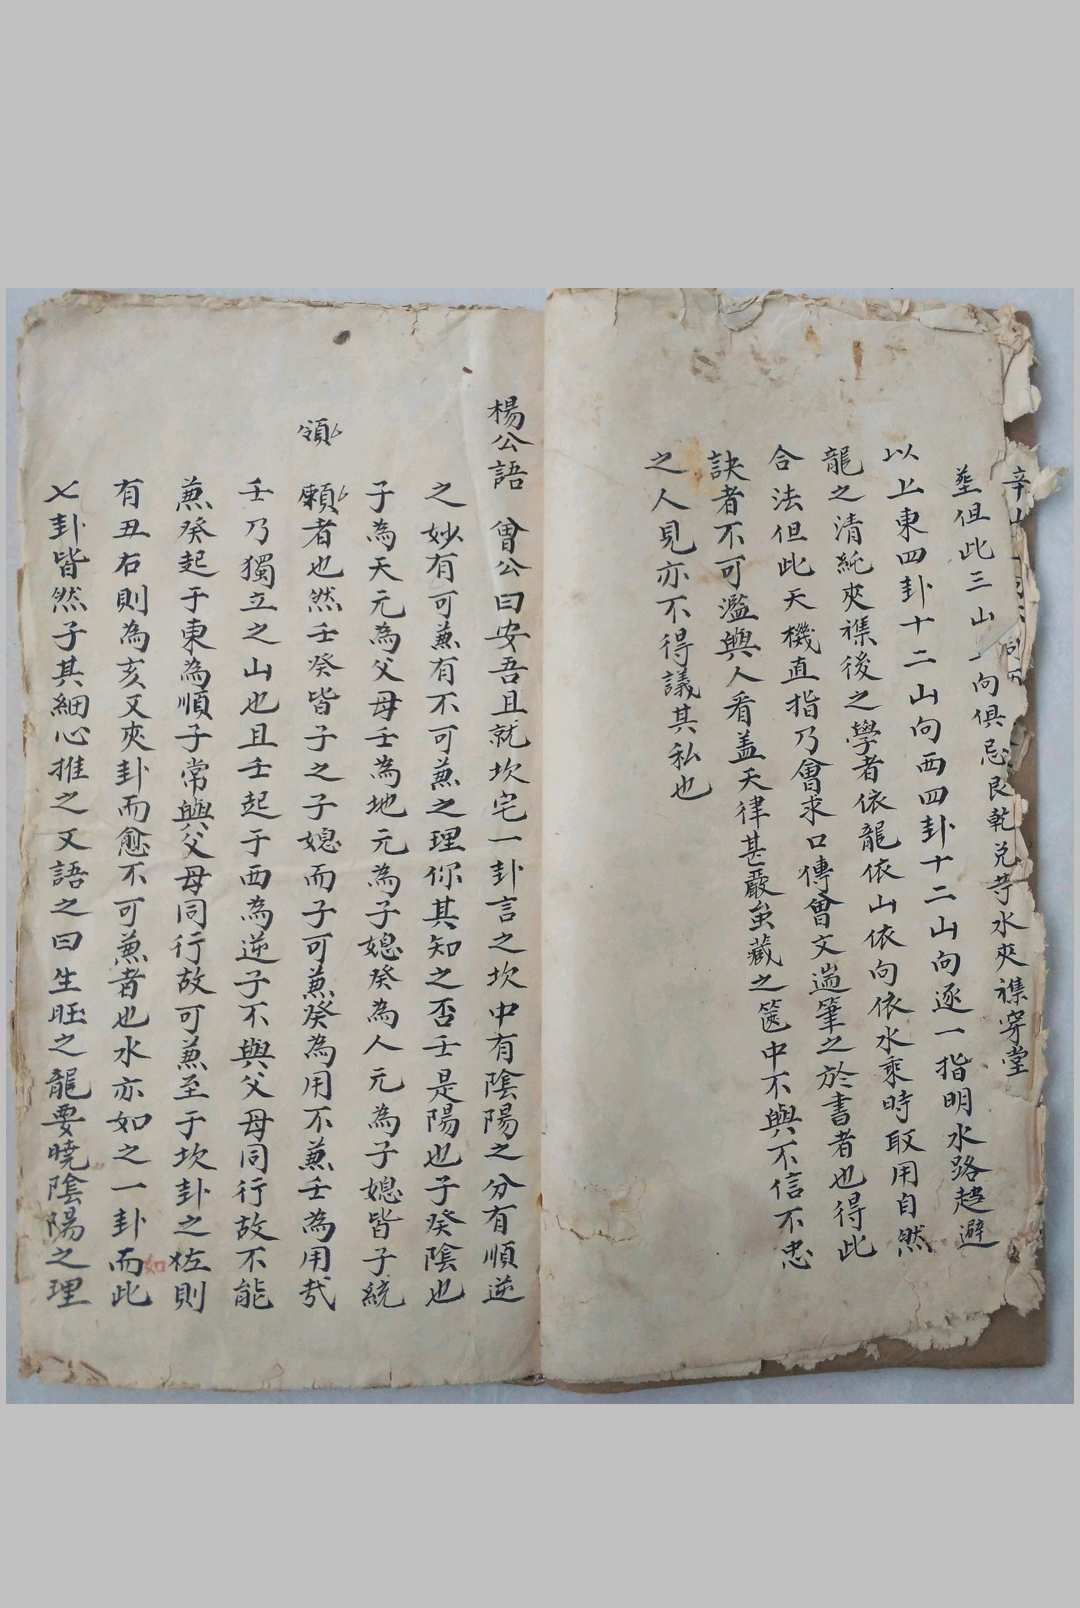 辛山
塋但此三山 向俱忌艮乾兌等水夾襍穿堂
以上東四卦十二山向西四卦十二山向逐一指明水路趨避
龍之清純夾襍後之學者依龍依山依向依水乘時取用自然
合法但此天機直指乃曾求口傳曾文遄筆之於書者也得此
訣者不可濫與人看盖天律甚嚴虽藏之篋中不與不信不忠
之人見亦不得議其私也
楊公語 曾公曰安吾且就坎宅一卦言之坎中有陰陽之分有順逆
之妙有可兼有不可兼之理你其知之否壬是陽也子癸陰也
子為天元為父母壬為地元為子媳癸為人元為子媳皆子統
領
頼者也然壬癸皆子之子媳而子可兼癸為用不兼壬為用哉
壬乃獨立之山也且壬起于西為逆子不與父母同行故不能
兼癸起于東為順子常與父母同行故可兼至于坎卦之左則
有丑右則為亥又夾卦而愈不可兼者也水亦如之一卦如而此
七卦皆然子其細心推之又語之曰生旺之龍要曉陰陽之理